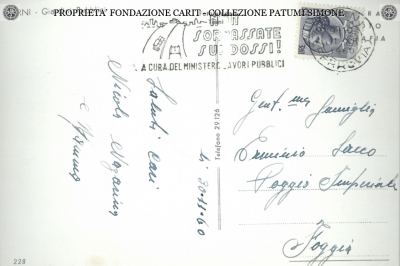 PROPRIETA' FONDAZIONE CARIT - COLLEZIONE PATUMI SIMONE
RNI - Gia
NON
SORPASSATE
SUI DOSSI!
A CURA DEL MINISTERO LAVORI PUBBLICI
FERROVIA
Telefono 29126
Saluti cari
Nicola Nazarena
e
li 30-11-60
Gent. ma Famiglia
Erminio Sacco
Poggio Imperiale
Foggia
228